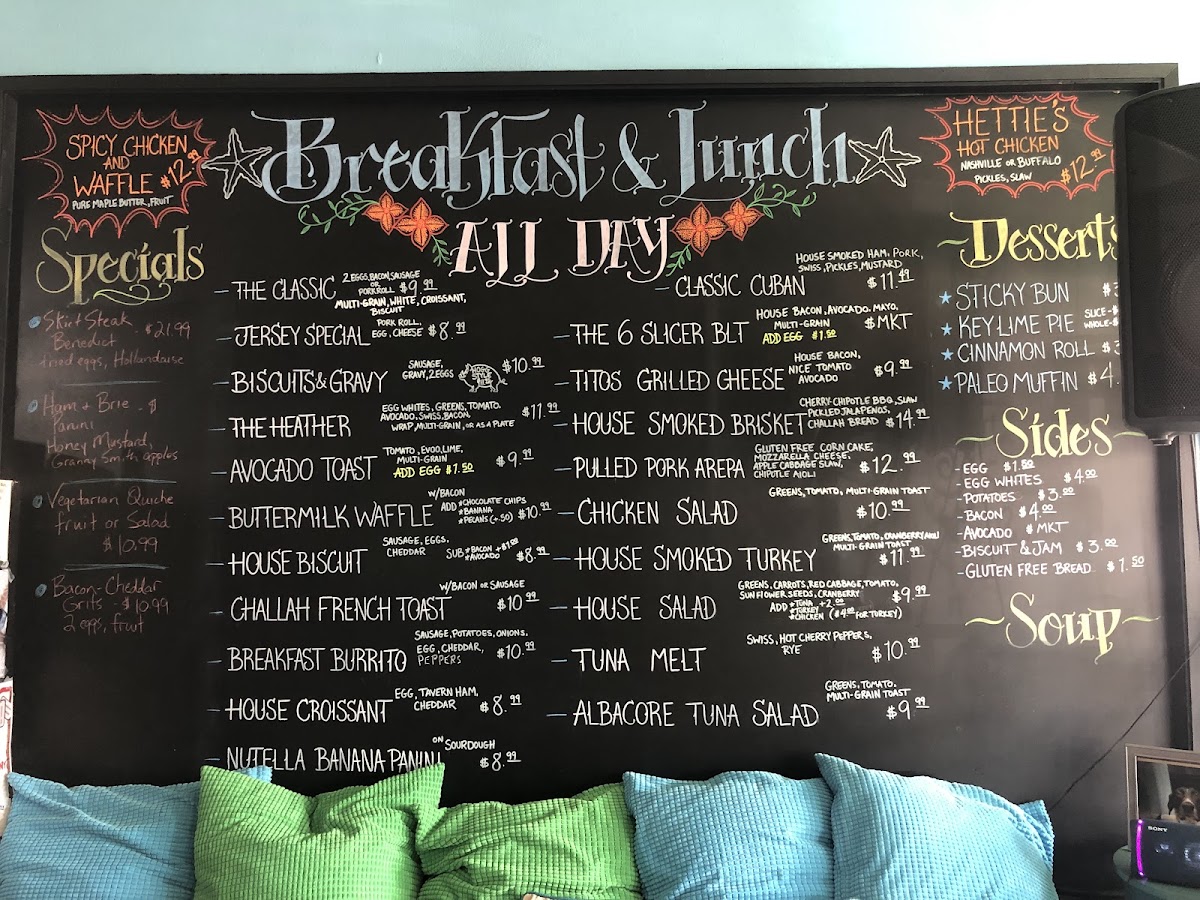 SPICY CHICKEN
AND
WAFFLE $12.99
PURE MAPLE BUTTER, FRUIT
Specials
Skirt Steak - $21.99
Benedict
fried eggs, Hollandaise
Ham + Brie - $
Panini
Honey Mustard,
Granny Smith apples
Vegetarian Quiche
fruit or Salad
$10.99
Bacon-Cheddar
Grits - $10.99
2 eggs, fruit
Breakfast & Lunch
ALL DAY
- THE CLASSIC 2 EGGS, BACON, SAUSAGE
OR
PORKROLL $9.99
MULTI-GRAIN, WHITE, CROISSANT,
BISCUIT
- JERSEY SPECIAL PORK ROLL,
EGG, CHEESE $8.99
- BISCUITS & GRAVY SAUSAGE,
GRAVY, 2 EGGS $10.99
- THE HEATHER EGG WHITES, GREENS, TOMATO,
AVOCADO, SWISS, BACON,
WRAP, MULTI-GRAIN, OR AS A PLATE $11.99
- AVOCADO TOAST TOMATO, EVOO, LIME,
MULTI-GRAIN
ADD EGG $1.50 $9.99
- BUTTERMILK WAFFLE W/BACON
ADD *CHOCOLATE CHIPS
*BANANA
*PECANS (+.50) $10.99
- HOUSE BISCUIT SAUSAGE, EGGS,
CHEDDAR SUB *BACON +$1.00
*AVOCADO $8.99
- CHALLAH FRENCH TOAST W/BACON OR SAUSAGE
$10.99
- BREAKFAST BURRITO SAUSAGE, POTATOES, ONIONS,
EGG, CHEDDAR,
PEPPERS $10.99
- HOUSE CROISSANT EGG, TAVERN HAM,
CHEDDAR $8.99
- NUTELLA BANANA PANINI ON SOURDOUGH
$8.99
- CLASSIC CUBAN HOUSE SMOKED HAM, PORK,
SWISS, PICKLES, MUSTARD
$11.49
- THE 6 SLICER BLT HOUSE BACON, AVOCADO, MAYO,
MULTI-GRAIN
ADD EGG $1.50 $MKT
- TITOS GRILLED CHEESE HOUSE BACON,
NICE TOMATO
AVOCADO $9.99
- HOUSE SMOKED BRISKET CHERRY-CHIPOTLE BBQ, SLAW
PICKLED JALAPENOS,
CHALLAH BREAD $14.99
- PULLED PORK AREPA GLUTEN FREE CORN CAKE,
MOZZARELLA CHEESE,
APPLE CABBAGE SLAW,
CHIPOTLE AIOLI $12.99
- CHICKEN SALAD GREENS, TOMATO, MULTI-GRAIN TOAST
$10.99
- HOUSE SMOKED TURKEY GREENS, TOMATO, CRANBERRY MAYO
MULTI-GRAIN TOAST
$11.99
- HOUSE SALAD GREENS, CARROTS, RED CABBAGE, TOMATO,
SUNFLOWER SEEDS, CRANBERRY
ADD *TUNA +2.00
*TURKEY
*CHICKEN ($4.00 FOR TURKEY) $9.99
- TUNA MELT SWISS, HOT CHERRY PEPPERS,
RYE $10.99
- ALBACORE TUNA SALAD GREENS, TOMATO,
MULTI-GRAIN TOAST
$9.99
HETTIE'S
HOT CHICKEN
NASHVILLE OR BUFFALO
PICKLES, SLAW $12.99
~Desserts
STICKY BUN $3
KEY LIME PIE SLICE-$
WHOLE-$
CINNAMON ROLL $3
PALEO MUFFIN $4.
~Sides~
- EGG $1.50
- EGG WHITES $4.00
- POTATOES $3.00
- BACON $4.00
- AVOCADO $MKT
- BISCUIT & JAM $3.00
- GLUTEN FREE BREAD $1.50
~Soup~
SONY